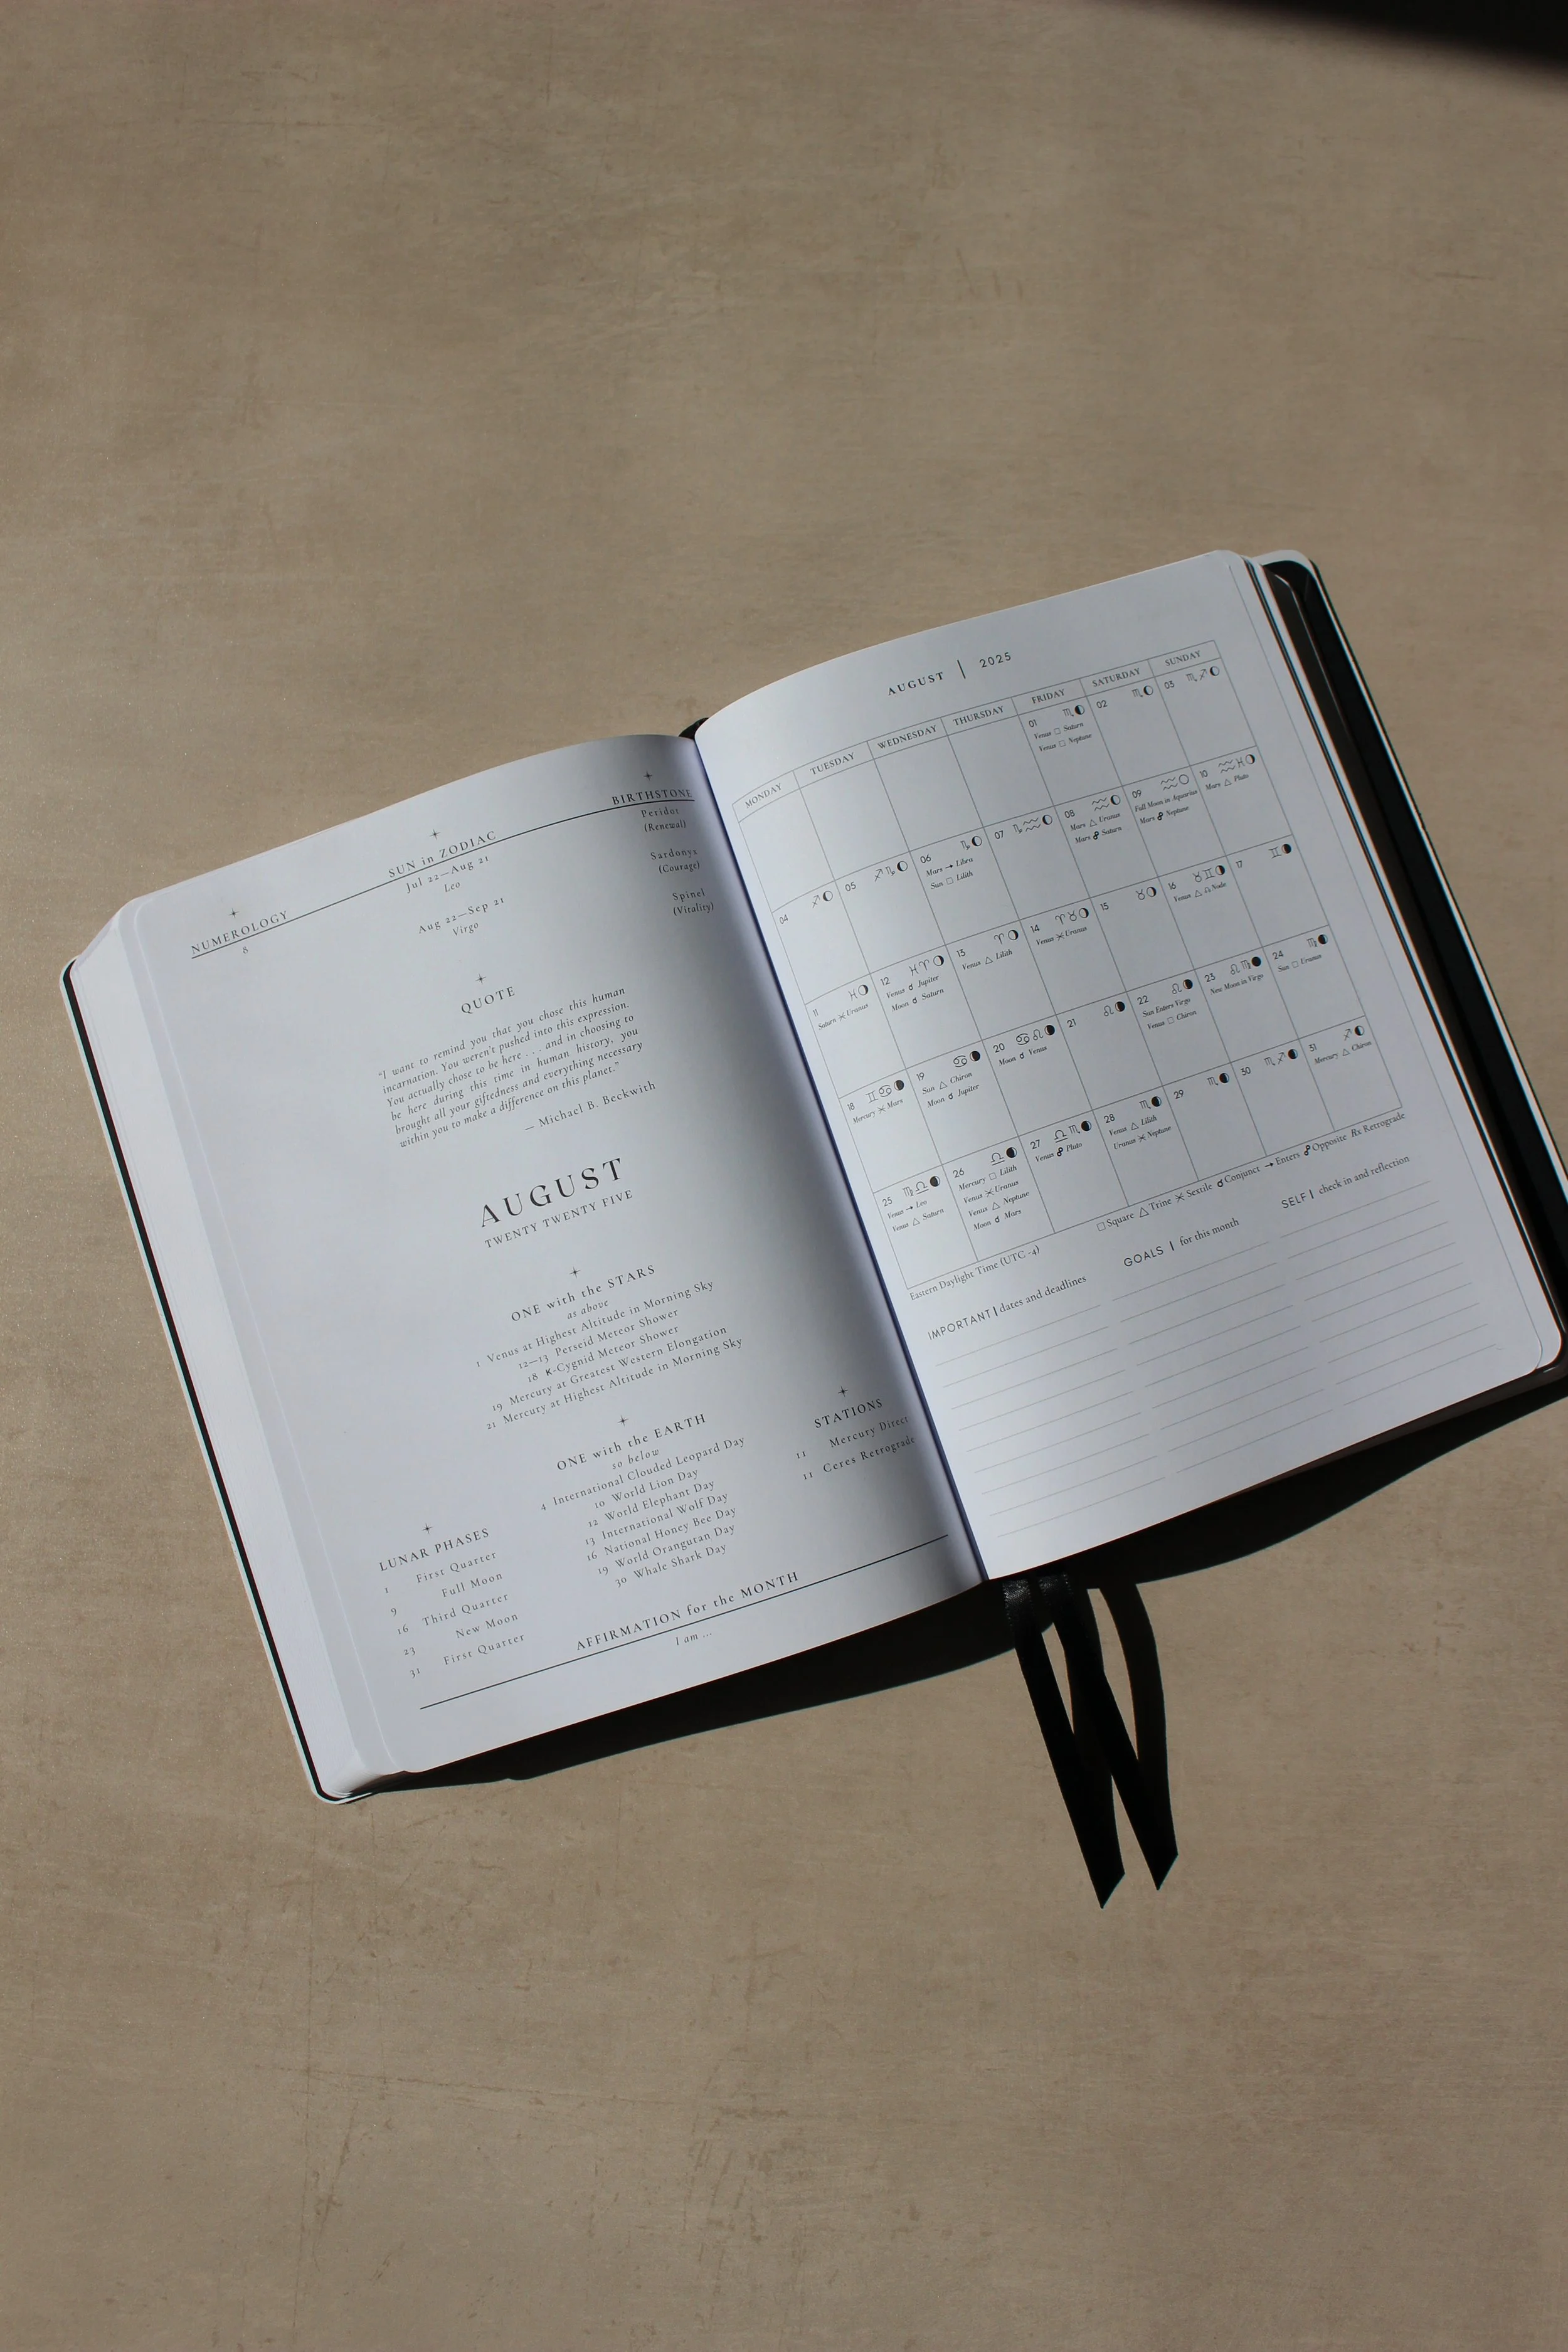 NUMEROLOGY
8
SUN in ZODIAC
Jul 22—Aug 21
Leo
Aug 22—Sep 21
Virgo
BIRTHSTONE
Peridot
(Renewal)
Sardonyx
(Courage)
Spinel
(Vitality)
QUOTE
"I want to remind you that you chose this human
incarnation. You weren't pushed into this expression.
You actually chose to be here . . . and in choosing to
be here during this time in human history, you
brought all your giftedness and everything necessary
within you to make a difference on this planet."
— Michael B. Beckwith
AUGUST
TWENTY TWENTY FIVE
ONE with the STARS
as above
1 Venus at Highest Altitude in Morning Sky
12—13 Perseid Meteor Shower
18 κ-Cygnid Meteor Shower
19 Mercury at Greatest Western Elongation
21 Mercury at Highest Altitude in Morning Sky
ONE with the EARTH
so below
4 International Clouded Leopard Day
10 World Lion Day
12 World Elephant Day
13 International Wolf Day
16 National Honey Bee Day
19 World Orangutan Day
30 Whale Shark Day
STATIONS
11 Mercury Direct
11 Ceres Retrograde
LUNAR PHASES
1 First Quarter
9 Full Moon
16 Third Quarter
23 New Moon
31 First Quarter
AFFIRMATION for the MONTH
I am ...
AUGUST | 2025
MONDAY TUESDAY WEDNESDAY THURSDAY FRIDAY SATURDAY SUNDAY
01 ♏
Venus □ Saturn
Venus □ Neptune
02 ♏
03 ♏ ♐
04 ♐
05 ♐ ♑
06 ♑
Mars → Libra
Sun □ Lilith
07 ♑ ♒
08 ♒
Mars △ Uranus
Mars ☍ Saturn
09 ♒
Full Moon in Aquarius
Mars ☍ Neptune
10 ♒ ♓
Mars △ Pluto
11 ♓
Saturn ⚹ Uranus
12 ♓ ♈
Venus ☌ Jupiter
Moon ☌ Saturn
13 ♈
Venus △ Lilith
14 ♈ ♉
Venus ⚹ Uranus
15 ♉
16 ♉ ♊
Venus △ ☊ Node
17 ♊
18 ♊ ♋
Mercury ⚹ Mars
19 ♋
Sun △ Chiron
Moon ☌ Jupiter
20 ♋ ♌
Moon ☌ Venus
21 ♌
22 ♌
Sun Enters Virgo
Venus □ Chiron
23 ♌ ♍
New Moon in Virgo
24 ♍
Sun □ Uranus
25 ♍ ♎
Venus → Leo
Venus △ Saturn
26 ♎
Mercury □ Lilith
Venus ⚹ Uranus
Venus △ Neptune
Moon ☌ Mars
27 ♎ ♏
Venus ☍ Pluto
28 ♏
Venus △ Lilith
Uranus ⚹ Neptune
29 ♏
30 ♏ ♐
31 ♐
Mercury △ Chiron
Eastern Daylight Time (UTC -4)
□ Square △ Trine ⚹ Sextile ☌ Conjunct → Enters ☍ Opposite Rx Retrograde
IMPORTANT | dates and deadlines
GOALS | for this month
SELF | check in and reflection